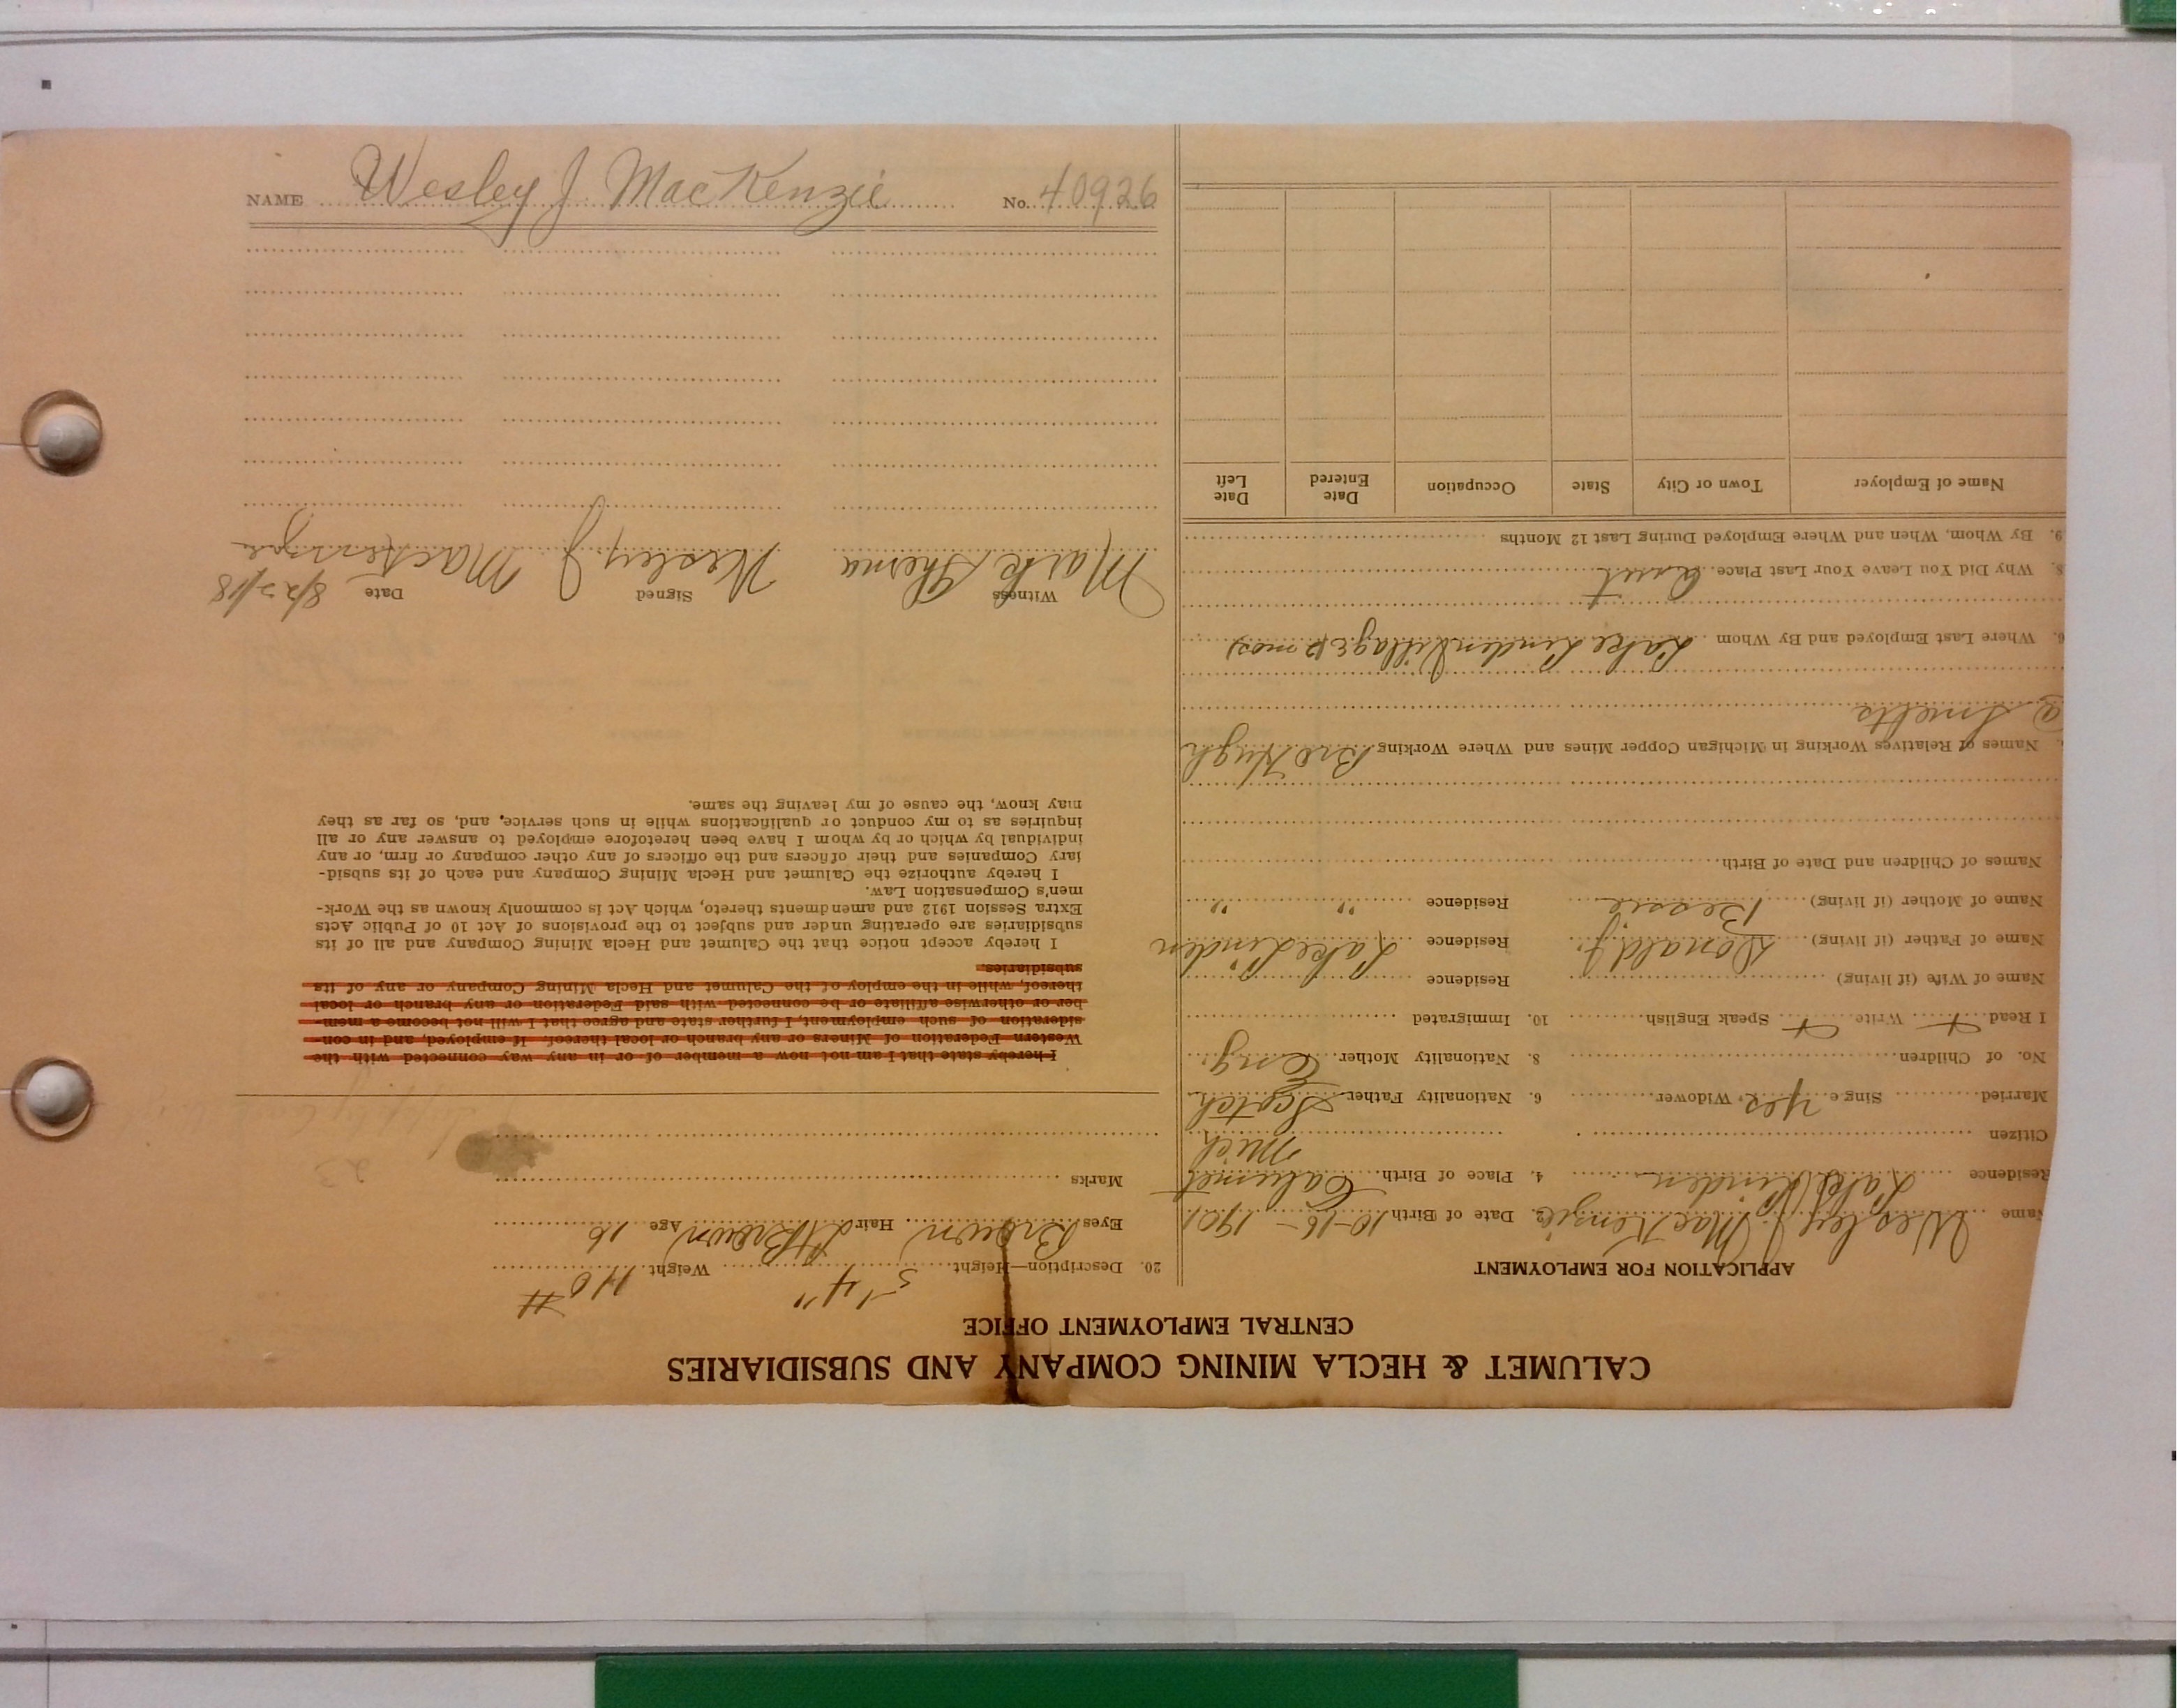 NAME Wesley J. MacKenzie No. 40926
CALUMET & HECLA MINING COMPANY AND SUBSIDIARIES
CENTRAL EMPLOYMENT OFFICE
APPLICATION FOR EMPLOYMENT
Name Wesley J. MacKenzie 2. Date of Birth 10-16-1901
Residence Lake Linden 4. Place of Birth Calumet
Mich
Citizen
Married Single yes, Widower 6. Nationality Father Scotch
No. of Children 8. Nationality Mother Eng.
I Read Write Speak English 10. Immigrated
Name of Wife (if living) Residence
Name of Father (if living) Donald J. Residence Lake Linden
Name of Mother (if living) Bessie Residence " "
Names of Children and Date of Birth
Names of Relatives Working in Michigan Copper Mines and Where Working Bro Hugh
@ Smelts
6. Where Last Employed and By Whom Lake Linden Village mos)
8. Why Did You Leave Your Last Place Quit
9. By Whom, When and Where Employed During Last 12 Months
Name of Employer Town or City State Occupation Date Entered Date Left
20. Description—Height 5'4" Weight 140 #
Eyes Brown Hair Lt Brown Age 16
Marks
23
I hereby state that I am not now a member of or in any way connected with the
Western Federation of Miners or any branch or local thereof. If employed, and in con-
sideration of such employment, I further state and agree that I will not become a mem-
ber or otherwise affiliate or be connected with said Federation or any branch or local
thereof, while in the employ of the Calumet and Hecla Mining Company or any of its
subsidiaries.
I hereby accept notice that the Calumet and Hecla Mining Company and all of its
subsidiaries are operating under and subject to the provisions of Act 10 of Public Acts
Extra Session 1912 and amendments thereto, which Act is commonly known as the Work-
men's Compensation Law.
I hereby authorize the Calumet and Hecla Mining Company and each of its subsid-
iary Companies and their officers and the officers of any other company or firm, or any
individual by which or by whom I have been heretofore employed to answer any or all
inquiries as to my conduct or qualifications while in such service, and, so far as they
may know, the cause of my leaving the same.
Witness Signed Date 8/22/18
Mark Wesley J MacKenzie